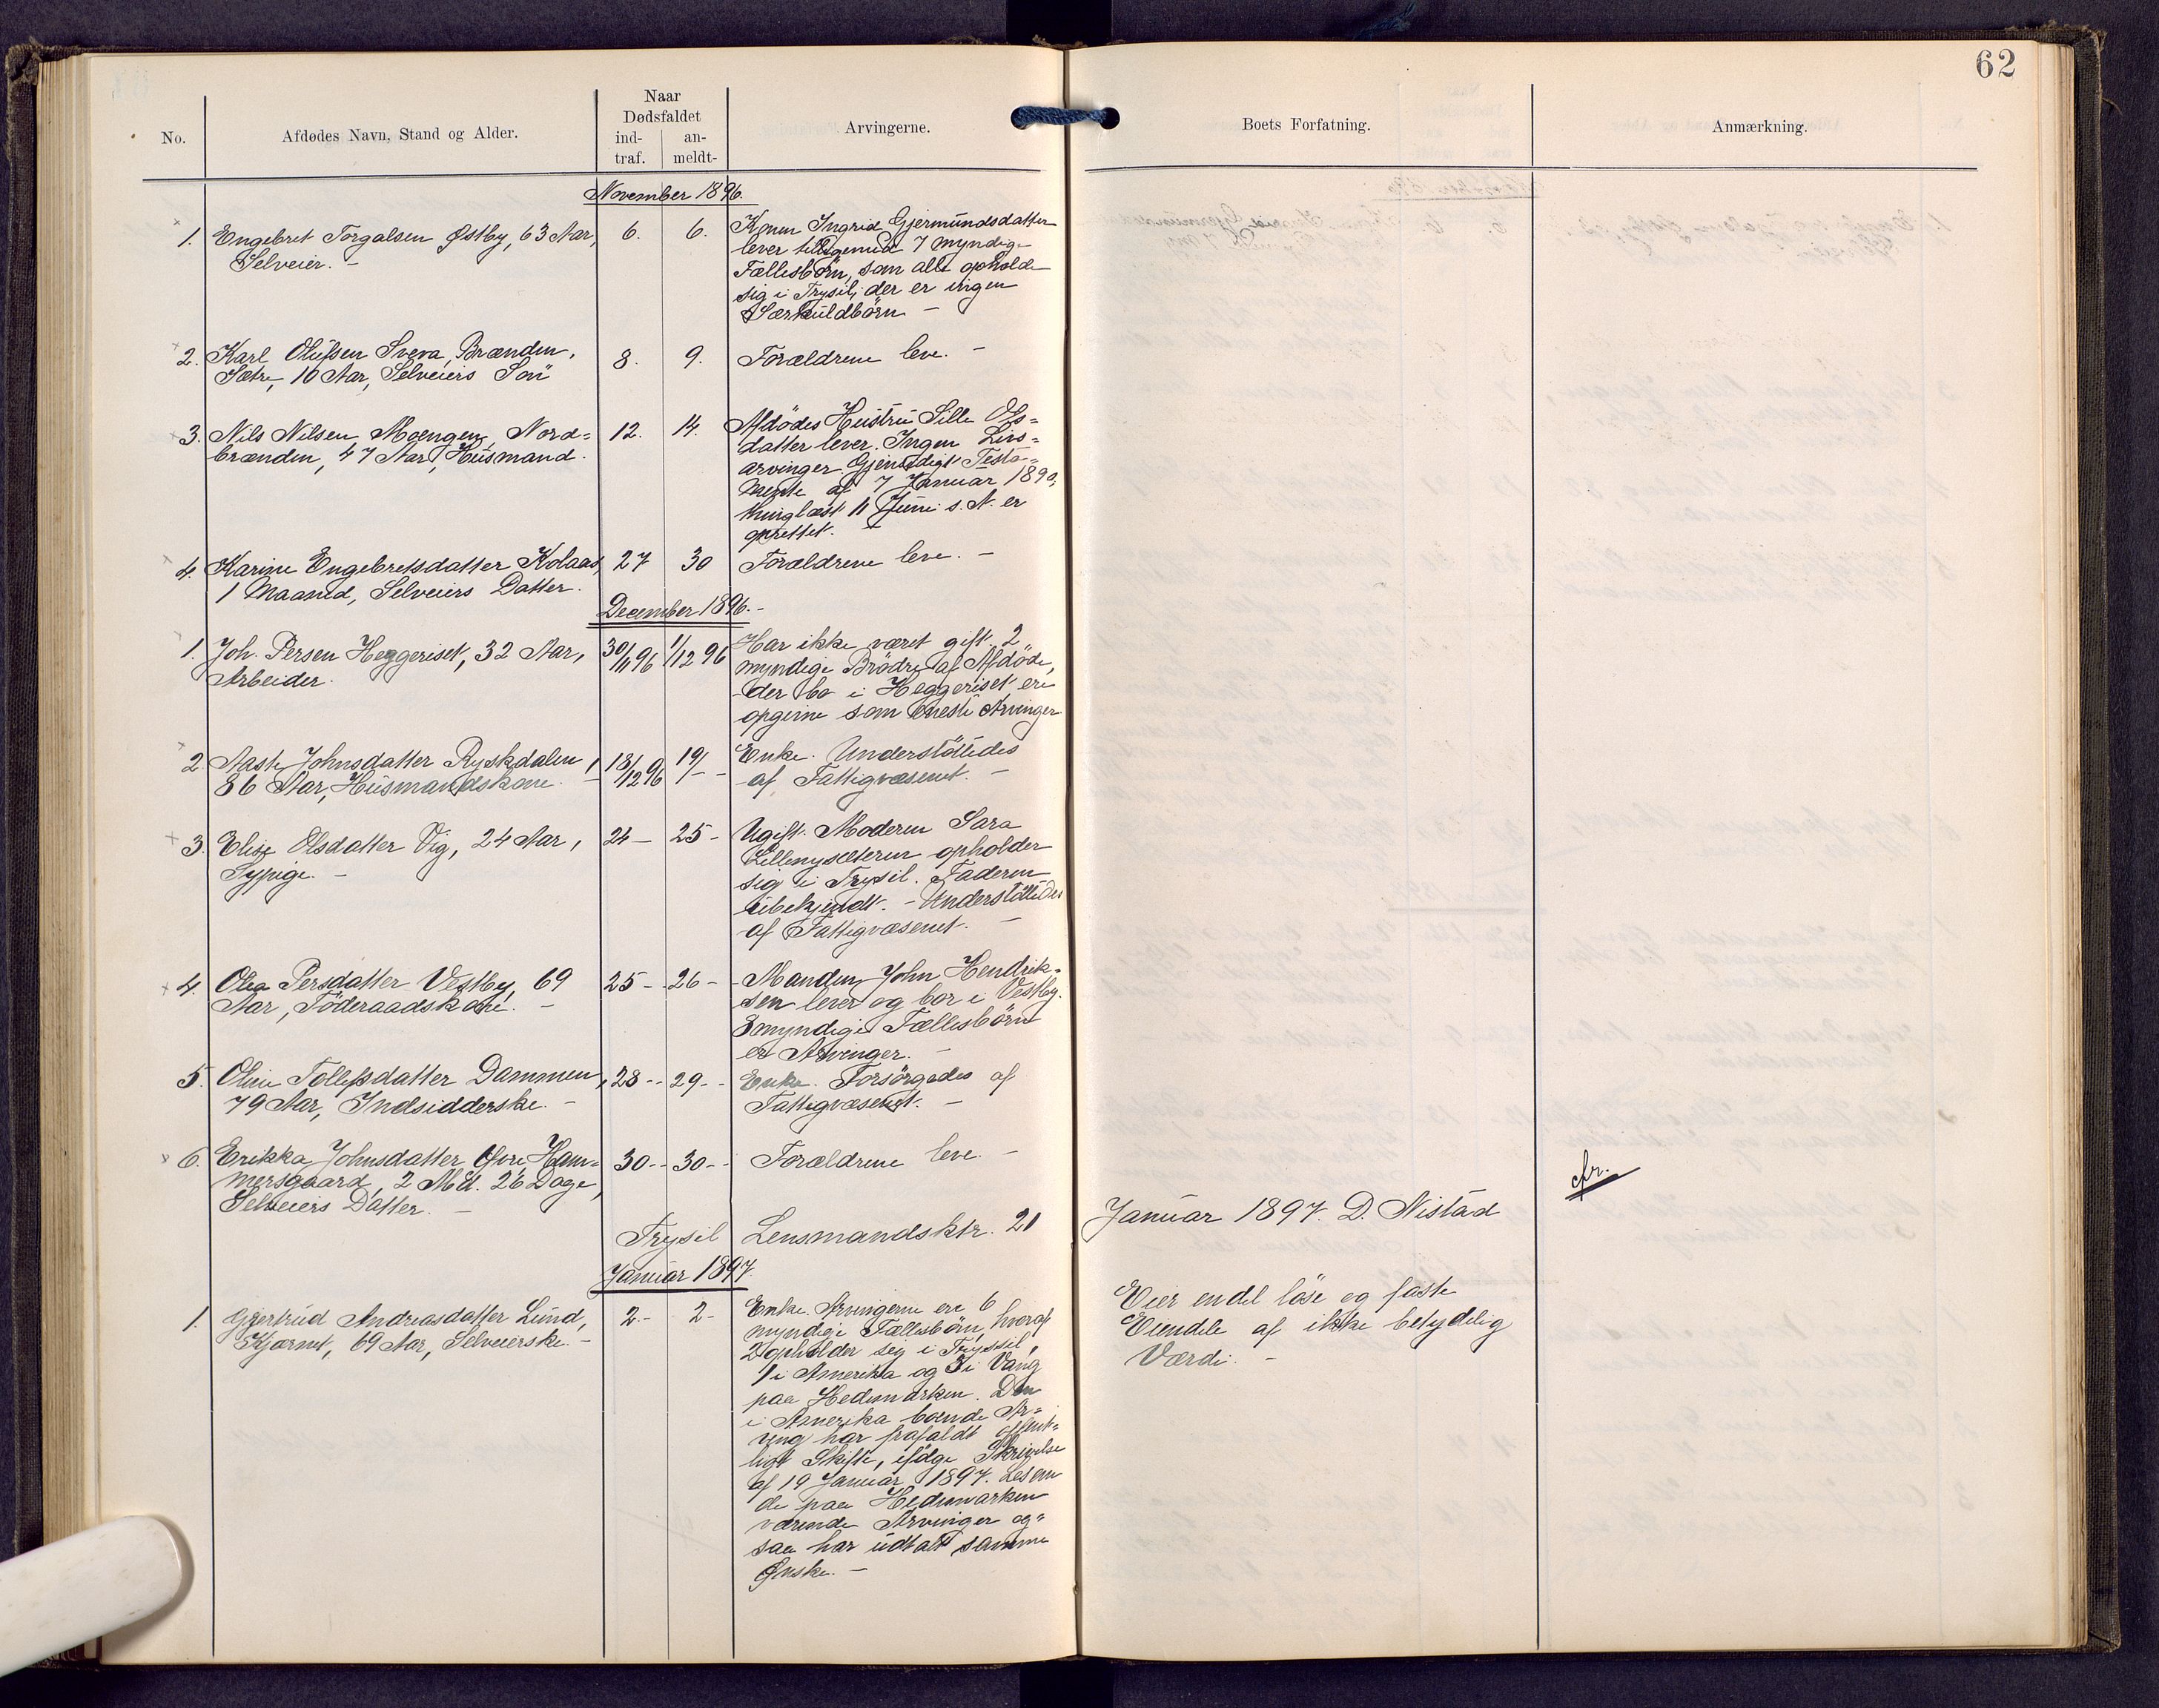 62
No.
Afdødes Navn, Stand og Alder.
Naar
Dødsfaldet
ind-
traf.
an-
meldt-
Arvingerne.
Boets Forfatning.
Anmærkning.
November 1896.
1. Engebret Torgalsen Østby, 63 Aar, 6. 6. Konen Ingrid Gjermundsdatter
Selveier. - lever tilligemed 7 myndige
Fællesbörn, som alle opholde
sig i Trysil; der er ingen
Særkuldbörn -
2. Karl Olufsen Svera, Brænden, 8. 9. Forældrene leve. -
Sætre, 10 Aar, Selveiers Sön
3. Nils Nilsen Moengen, Nord= 12. 14. Afdödes Hustru Sille Ols=
brænden, 47 Aar, Husmand. datter lever. Ingen Livs=
arvinger. Gjensidigt Testa=
mente af 7 Januar 1890,
thinglæst 11 Juni s. A. er
oprettet.
4. Karine Engebretsdatter Kolaas, 27 30 Forældrene leve. -
1 Maaned, Selveiers Datter.
December 1896. -
1. Joh. Persen Heggeriset, 32 Aar, 30/11 96 1/12 96 Har ikke været gift. 2
Arbeider. myndige Brödre af Afdöde,
der bo i Heggeriset ere
opgivne som eneste Arvinger
2 Aaste Johnsdatter Ryskdalen, 18/12 96 19/- - Enke. Understöttedes
86 Aar, Husmandskone. - af Fattigvæsenet. -
3. Elise Olsdatter Vig, 24 Aar, 24 - 25 - Ugift. Moderen Sara
Sypige. - Lillenysæteren opholder
sig i Trysil. Faderen
ubekjendt. - Understöttedes
af Fattigvæsenet. -
4. Olea Persdatter Vestby, 69 25 - - 26 - Manden John Hendrik=
Aar, Föderaadskone. - sen lever og bor i Vestby.
3 myndige Fællesbörn
er Arvinger. -
5. Oline Tollefsdatter Dammen, 28 - - 29 - - Enke. Forsörgedes af
79 Aar, Indsidderske. - Fattigvæsenet. -
6. Erikka Johnsdatter Øvre Ham= 30 - - 30 - - Forældrene leve. -
mersgaard, 2 Md. 26 Dage,
Selveiers Datter. -
Trysil Lensmandsktr. 21 Januar 1897. D. Nistad
Januar 1897.
1. Gjertrud Andreasdatter Lund, 2. - 2 - Enke. Arvingerne ere 6
Kjærnet, 69 Aar, Selveierske. - myndige Fællesbörn, hvoraf
2 opholder seg i Tryssil,
1 i Amerika og 3 i Vang
paa Hedemarken. Den
i Amerika boende Ar=
ving har frafaldt offent=
ligt Skifte, ifölge Skrivelse
af 19 Januar 1897.
de paa Hedemarken
værende Arvinger og=
saa har udtalt samme
Ønske. -
Eier endel löse og faste
Eiendele af ikke betydelig
Værdi. -